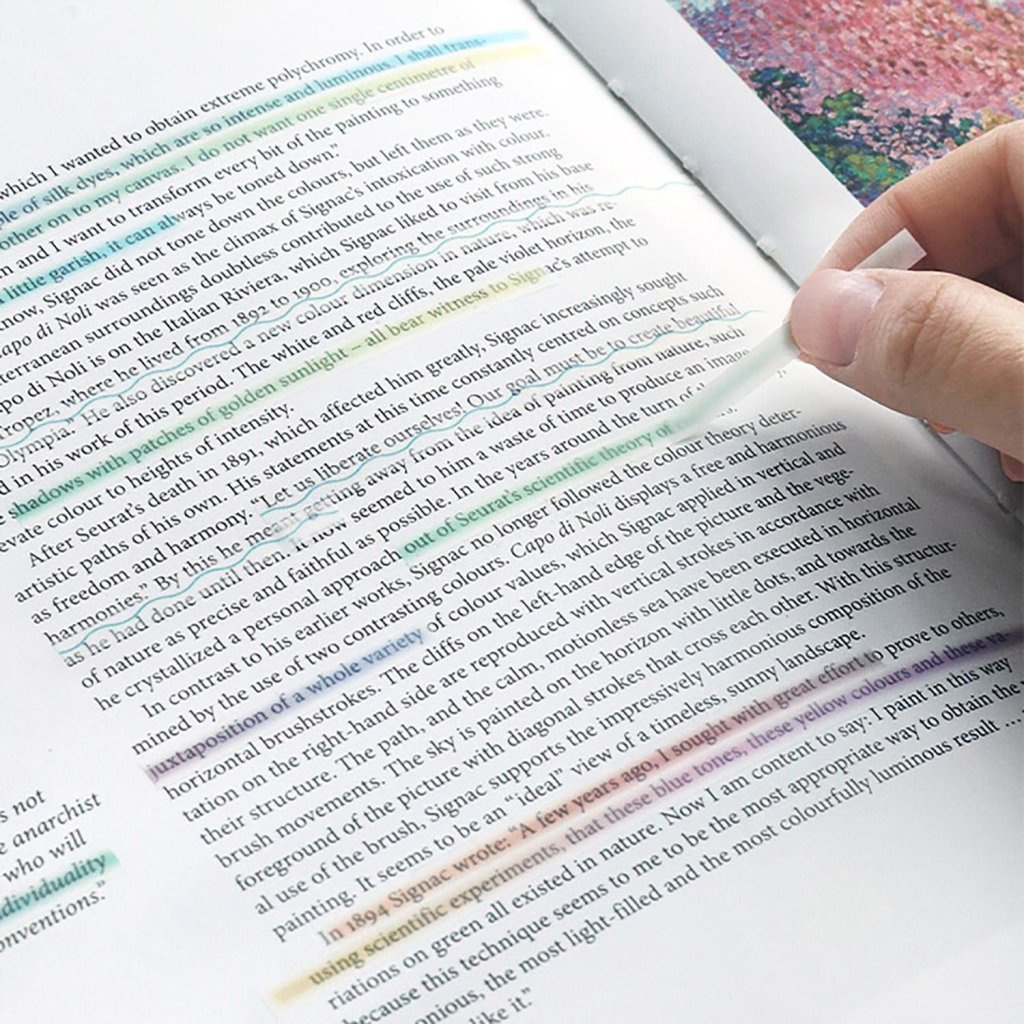 which I wanted to obtain extreme polychromy. In order to
of silk dyes, which are so intense and luminous. I shall trans-
other on to my canvas. I do not want one single centimetre of
and I want to transform every bit of the painting to something
little garish, it can always be toned down.”
now, Signac did not tone down the colours, but left them as they were.
apo di Noli was seen as the climax of Signac’s intoxication with colour.
terranean surroundings doubtless contributed to the use of such strong
po di Noli is on the Italian Riviera, which Signac liked to visit from his base
Tropez, where he lived from 1892 to 1900, exploring the surroundings in his
Olympia.” He also discovered a new colour dimension in nature, which was re-
d in his work of this period. The white and red cliffs, the pale violet horizon, the
shadows with patches of golden sunlight – all bear witness to Signac’s attempt to
evate colour to heights of intensity.
After Seurat’s death in 1891, which affected him greatly, Signac increasingly sought
artistic paths of his own. His statements at this time constantly centred on concepts such
as freedom and harmony. “Let us liberate ourselves! Our goal must be to create beautiful
harmonies.” By this he meant getting away from the idea of painting from nature, such
as he had done until then. It now seemed to him a waste of time to produce an image
of nature as precise and faithful as possible. In the years around the turn of
he crystallized a personal approach out of Seurat’s scientific theory of
In contrast to his earlier works, Signac no longer followed the colour theory deter-
mined by the use of two contrasting colours. Capo di Noli displays a free and harmonious
juxtaposition of a whole variety of colour values, which Signac applied in vertical and
horizontal brushstrokes. The cliffs on the left-hand edge of the picture and the vege-
tation on the right-hand side are reproduced with vertical strokes in accordance with
their structure. The path, and the calm, motionless sea have been executed in horizontal
brush movements. The sky is painted on the horizon with little dots, and towards the
foreground of the picture with diagonal strokes that cross each other. With this structur-
al use of the brush, Signac supports the impressively harmonious composition of the
painting. It seems to be an “ideal” view of a timeless, sunny landscape.
In 1894 Signac wrote: “A few years ago, I sought with great effort to prove to others,
using scientific experiments, that these blue tones, these yellow colours and these va-
riations on green all existed in nature. Now I am content to say: I paint in this way
because this technique seems to me to be the most appropriate way to obtain the
onious, the most light-filled and the most colourfully luminous result …
like it.”
s not
e anarchist
who will
dividuality
onventions.”